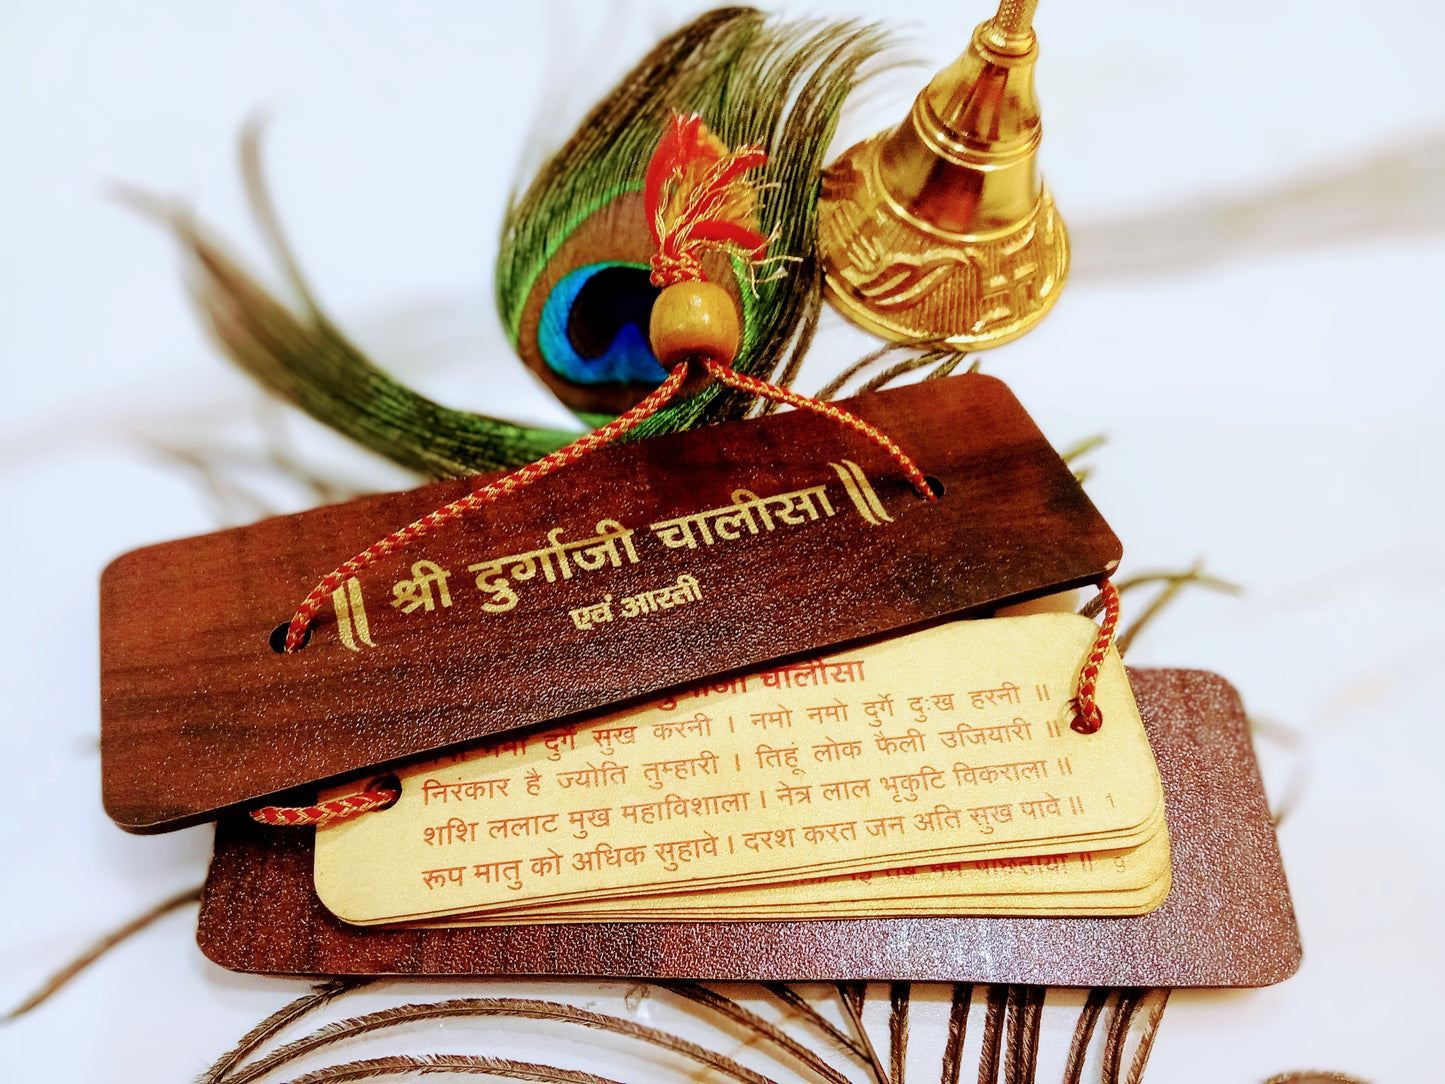 ॥ श्री दुर्गाजी चालीसा ॥
एवं आरती
चालीसा
नमो दुर्गे सुख करनी । नमो नमो दुर्गे दुःख हरनी ॥
निरंकार है ज्योति तुम्हारी । तिहूं लोक फैली उजियारी ॥
शशि ललाट मुख महाविशाला । नेत्र लाल भृकुटि विकराला ॥
रूप मातु को अधिक सुहावे । दरश करत जन अति सुख पावे ॥ 1
॥ 9